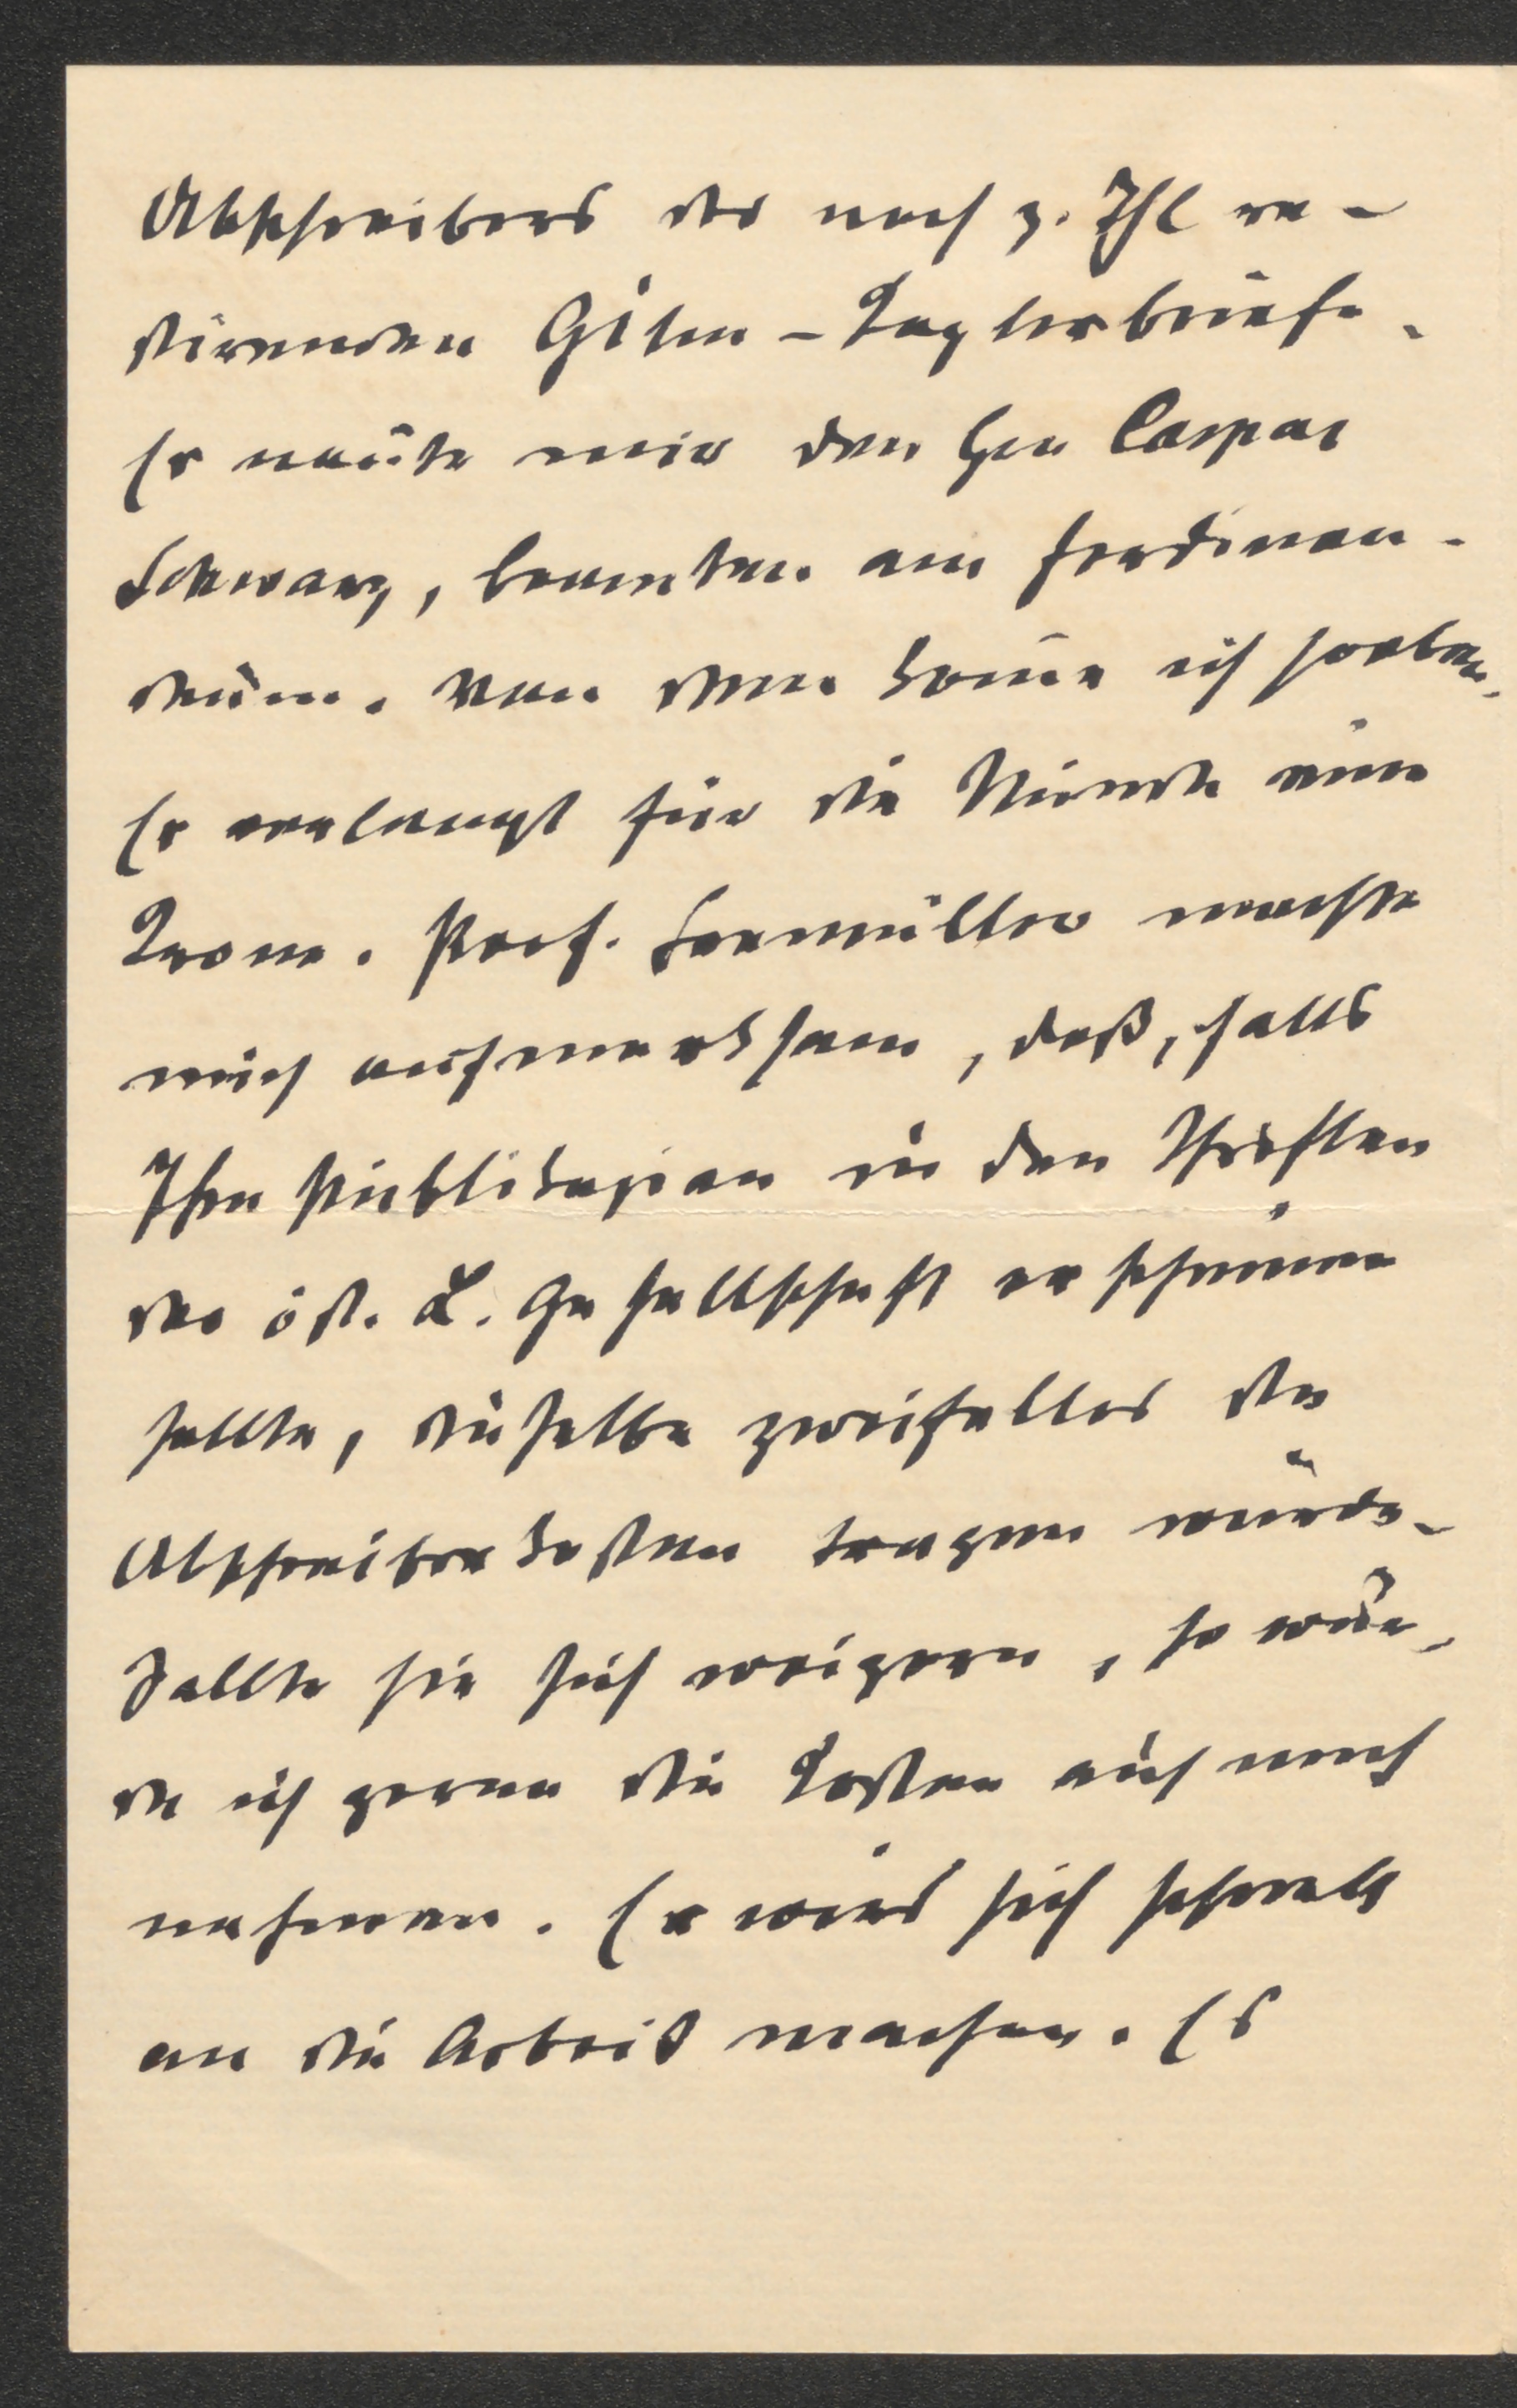 Abschreibers der noch z. Thl re-
stirenden Gilm-Kaglerbriefe.
Er nannte mir den Hrn Caspar
Schwarz, Beamten am Ferdinan-
deum. Von dem komme ich soeben.
Er verlangt für die Stunde eine
Krone. Prof. Seemüller machte
mich aufmerksam, daß, falls
Ihre Publikazion in den Schriften
der öst. L. Gesellschaft erscheinen
sollte, dieselbe zweifellos die
Abschreibekosten tragen würde.
Sollte sie sich weigern, so wür-
de ich gerne die Kosten auf mich
nehmen. Er wird sich schnell
an die Arbeit machen. Es